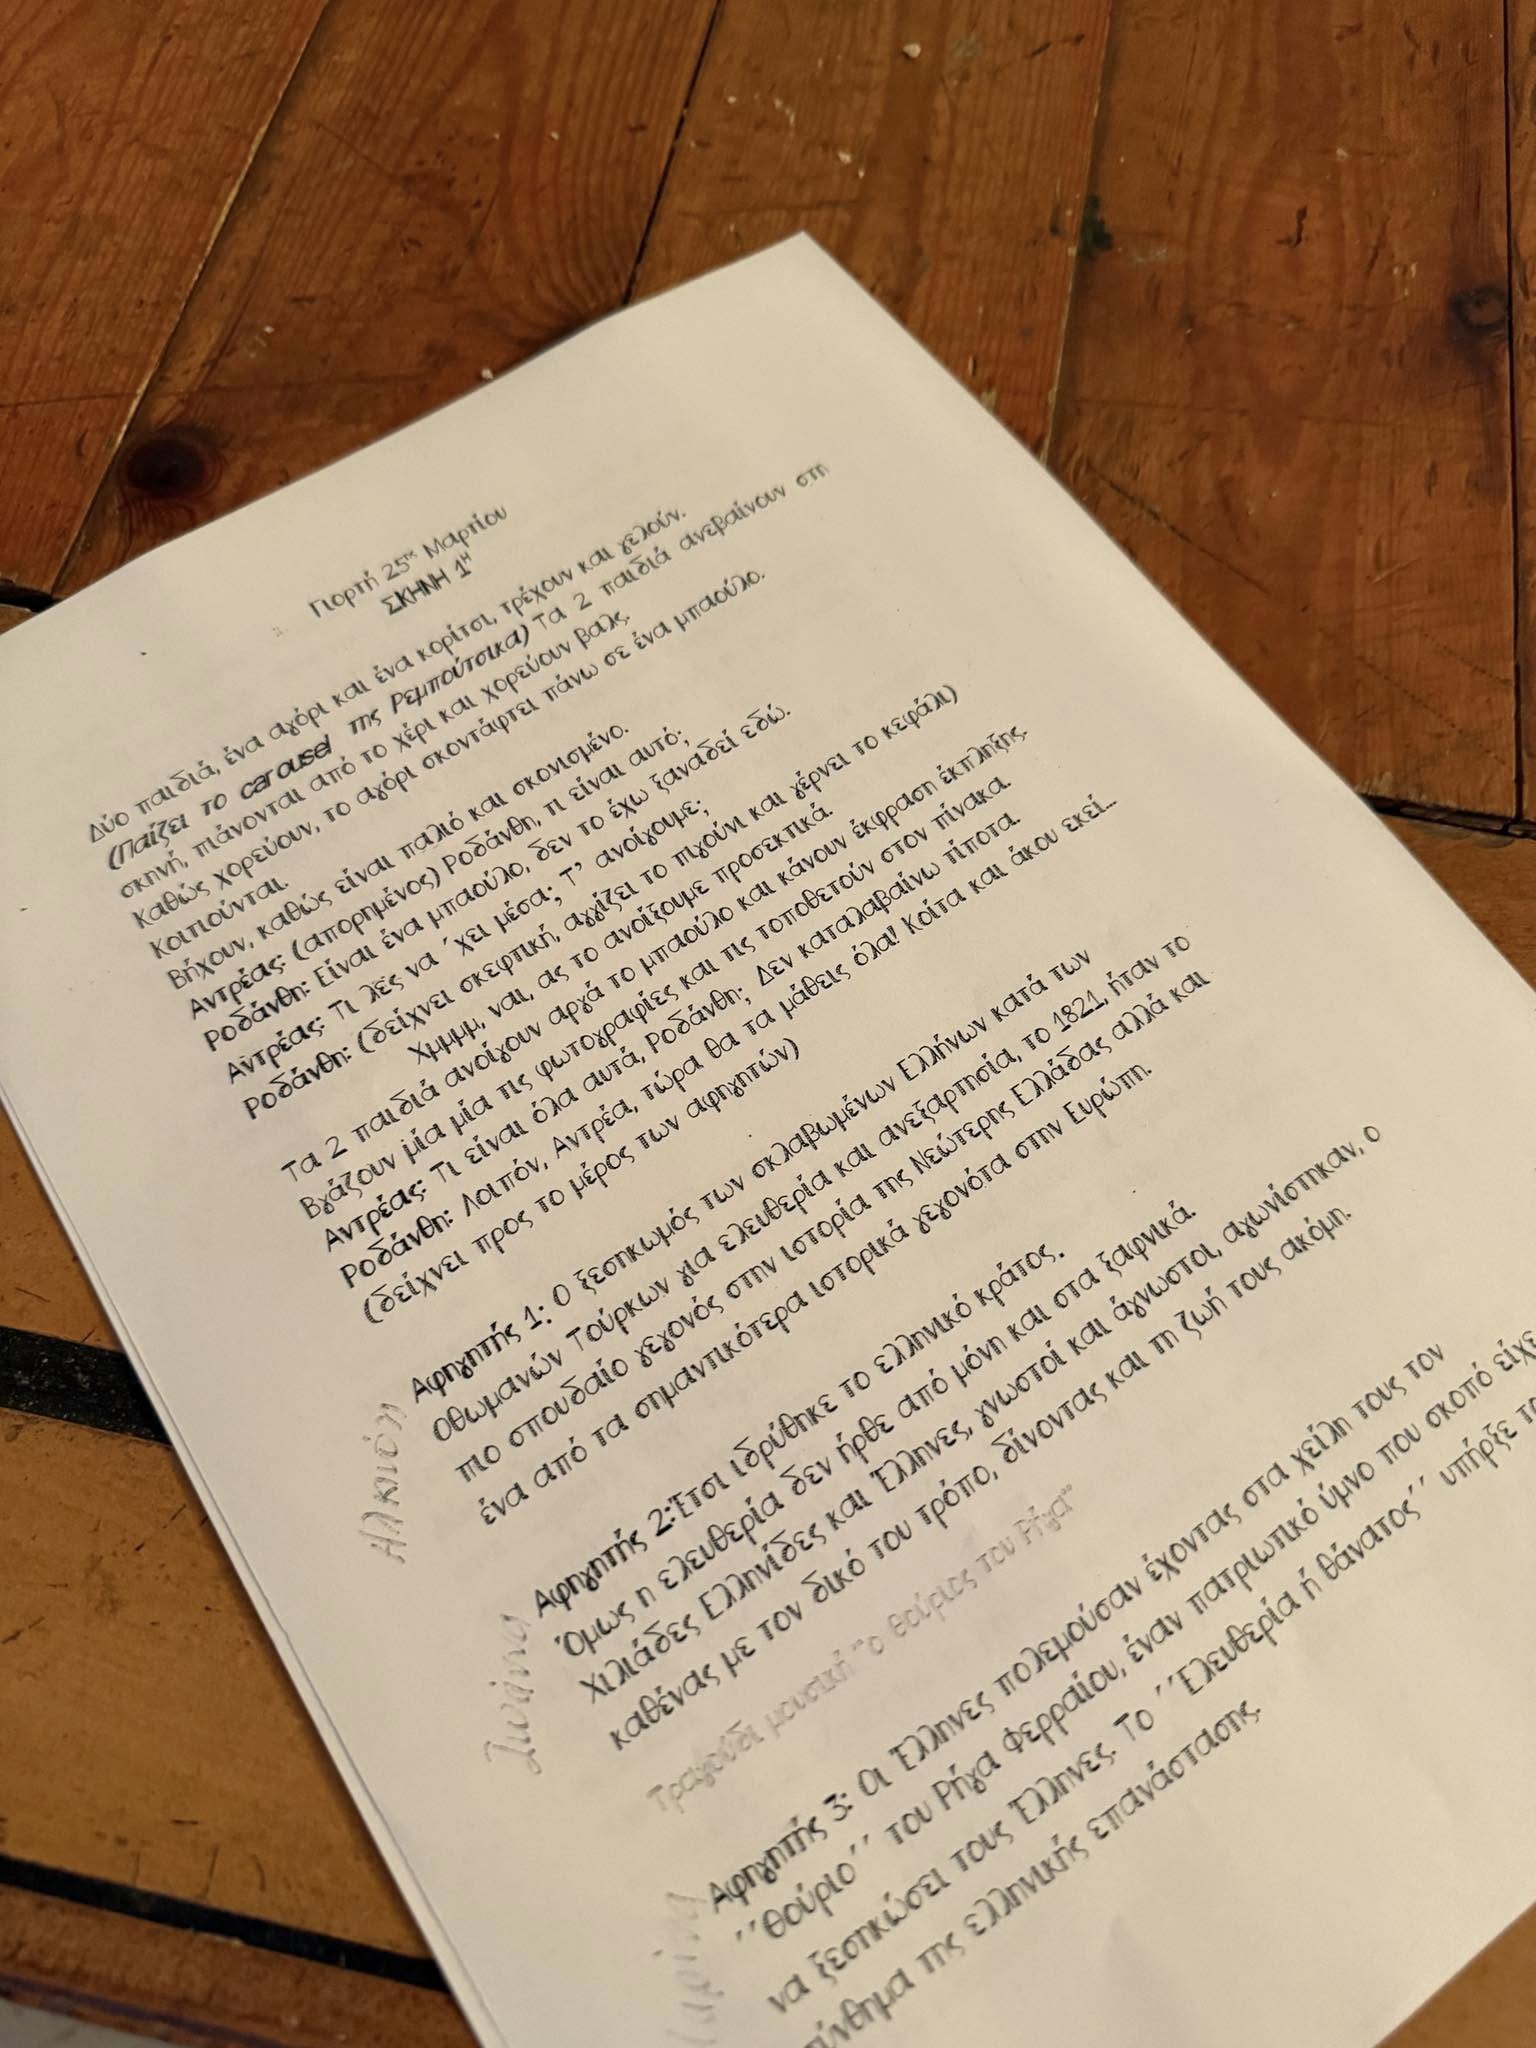 Γιορτή 25ης Μαρτίου
ΣΚΗΝΗ 1Η
Δύο παιδιά, ένα αγόρι και ένα κορίτσι, τρέχουν και γελούν.
(Παίζει το carousel της Ρεμπούτσικα) Τα 2 παιδιά ανεβαίνουν στη
σκηνή, πιάνονται από το χέρι και χορεύουν βαλς.
Καθώς χορεύουν, το αγόρι σκοντάφτει πάνω σε ένα μπαούλο.
Κοιτιούνται.
Βήχουν, καθώς είναι παλιό και σκονισμένο.
Αντρέας: (απορημένος) Ροδάνθη, τι είναι αυτό;
Ροδάνθη: Είναι ένα μπαούλο, δεν το έχω ξαναδεί εδώ.
Αντρέας: Τι λες να ΄χει μέσα; Τ' ανοίγουμε;
Ροδάνθη: (δείχνει σκεφτική, αγγίζει το πιγούνι και γέρνει το κεφάλι)
Χμμμμ, ναι, ας το ανοίξουμε προσεκτικά.
Τα 2 παιδιά ανοίγουν αργά το μπαούλο και κάνουν έκφραση έκπληξης.
Βγάζουν μία μία τις φωτογραφίες και τις τοποθετούν στον πίνακα.
Αντρέας: Τι είναι όλα αυτά, Ροδάνθη; Δεν καταλαβαίνω τίποτα.
Ροδάνθη: Λοιπόν, Αντρέα, τώρα θα τα μάθεις όλα! Κοίτα και άκου εκεί...
(δείχνει προς το μέρος των αφηγητών)
Αφηγητής 1: Ο ξεσηκωμός των σκλαβωμένων Ελλήνων κατά των
Οθωμανών Τούρκων για ελευθερία και ανεξαρτησία, το 1821, ήταν το
πιο σπουδαίο γεγονός στην ιστορία της Νεώτερης Ελλάδας αλλά και
ένα από τα σημαντικότερα ιστορικά γεγονότα στην Ευρώπη.
Αλκυόνη
Αφηγητής 2:Έτσι ιδρύθηκε το ελληνικό κράτος.
Όμως η ελευθερία δεν ήρθε από μόνη και στα ξαφνικά.
Χιλιάδες Ελληνίδες και Έλληνες, γνωστοί και άγνωστοι, αγωνίστηκαν, ο
καθένας με τον δικό του τρόπο, δίνοντας και τη ζωή τους ακόμη.
Τραγούδι μουσική "ο θούριος του Ρήγα"
Αφηγητής 3: Οι Έλληνες πολεμούσαν έχοντας στα χείλη τους τον
΄΄Θούριο΄΄ του Ρήγα Φερραίου, έναν πατριωτικό ύμνο που σκοπό είχε
να ξεσηκώσει τους Έλληνες. Το ΄΄Ελευθερία ή θάνατος΄΄ υπήρξε το
σύνθημα της ελληνικής επανάστασης.